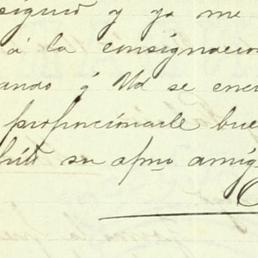 y ya me
á la consignacion
ando á Ud se enc
proporcionarle bue
su afmo amig